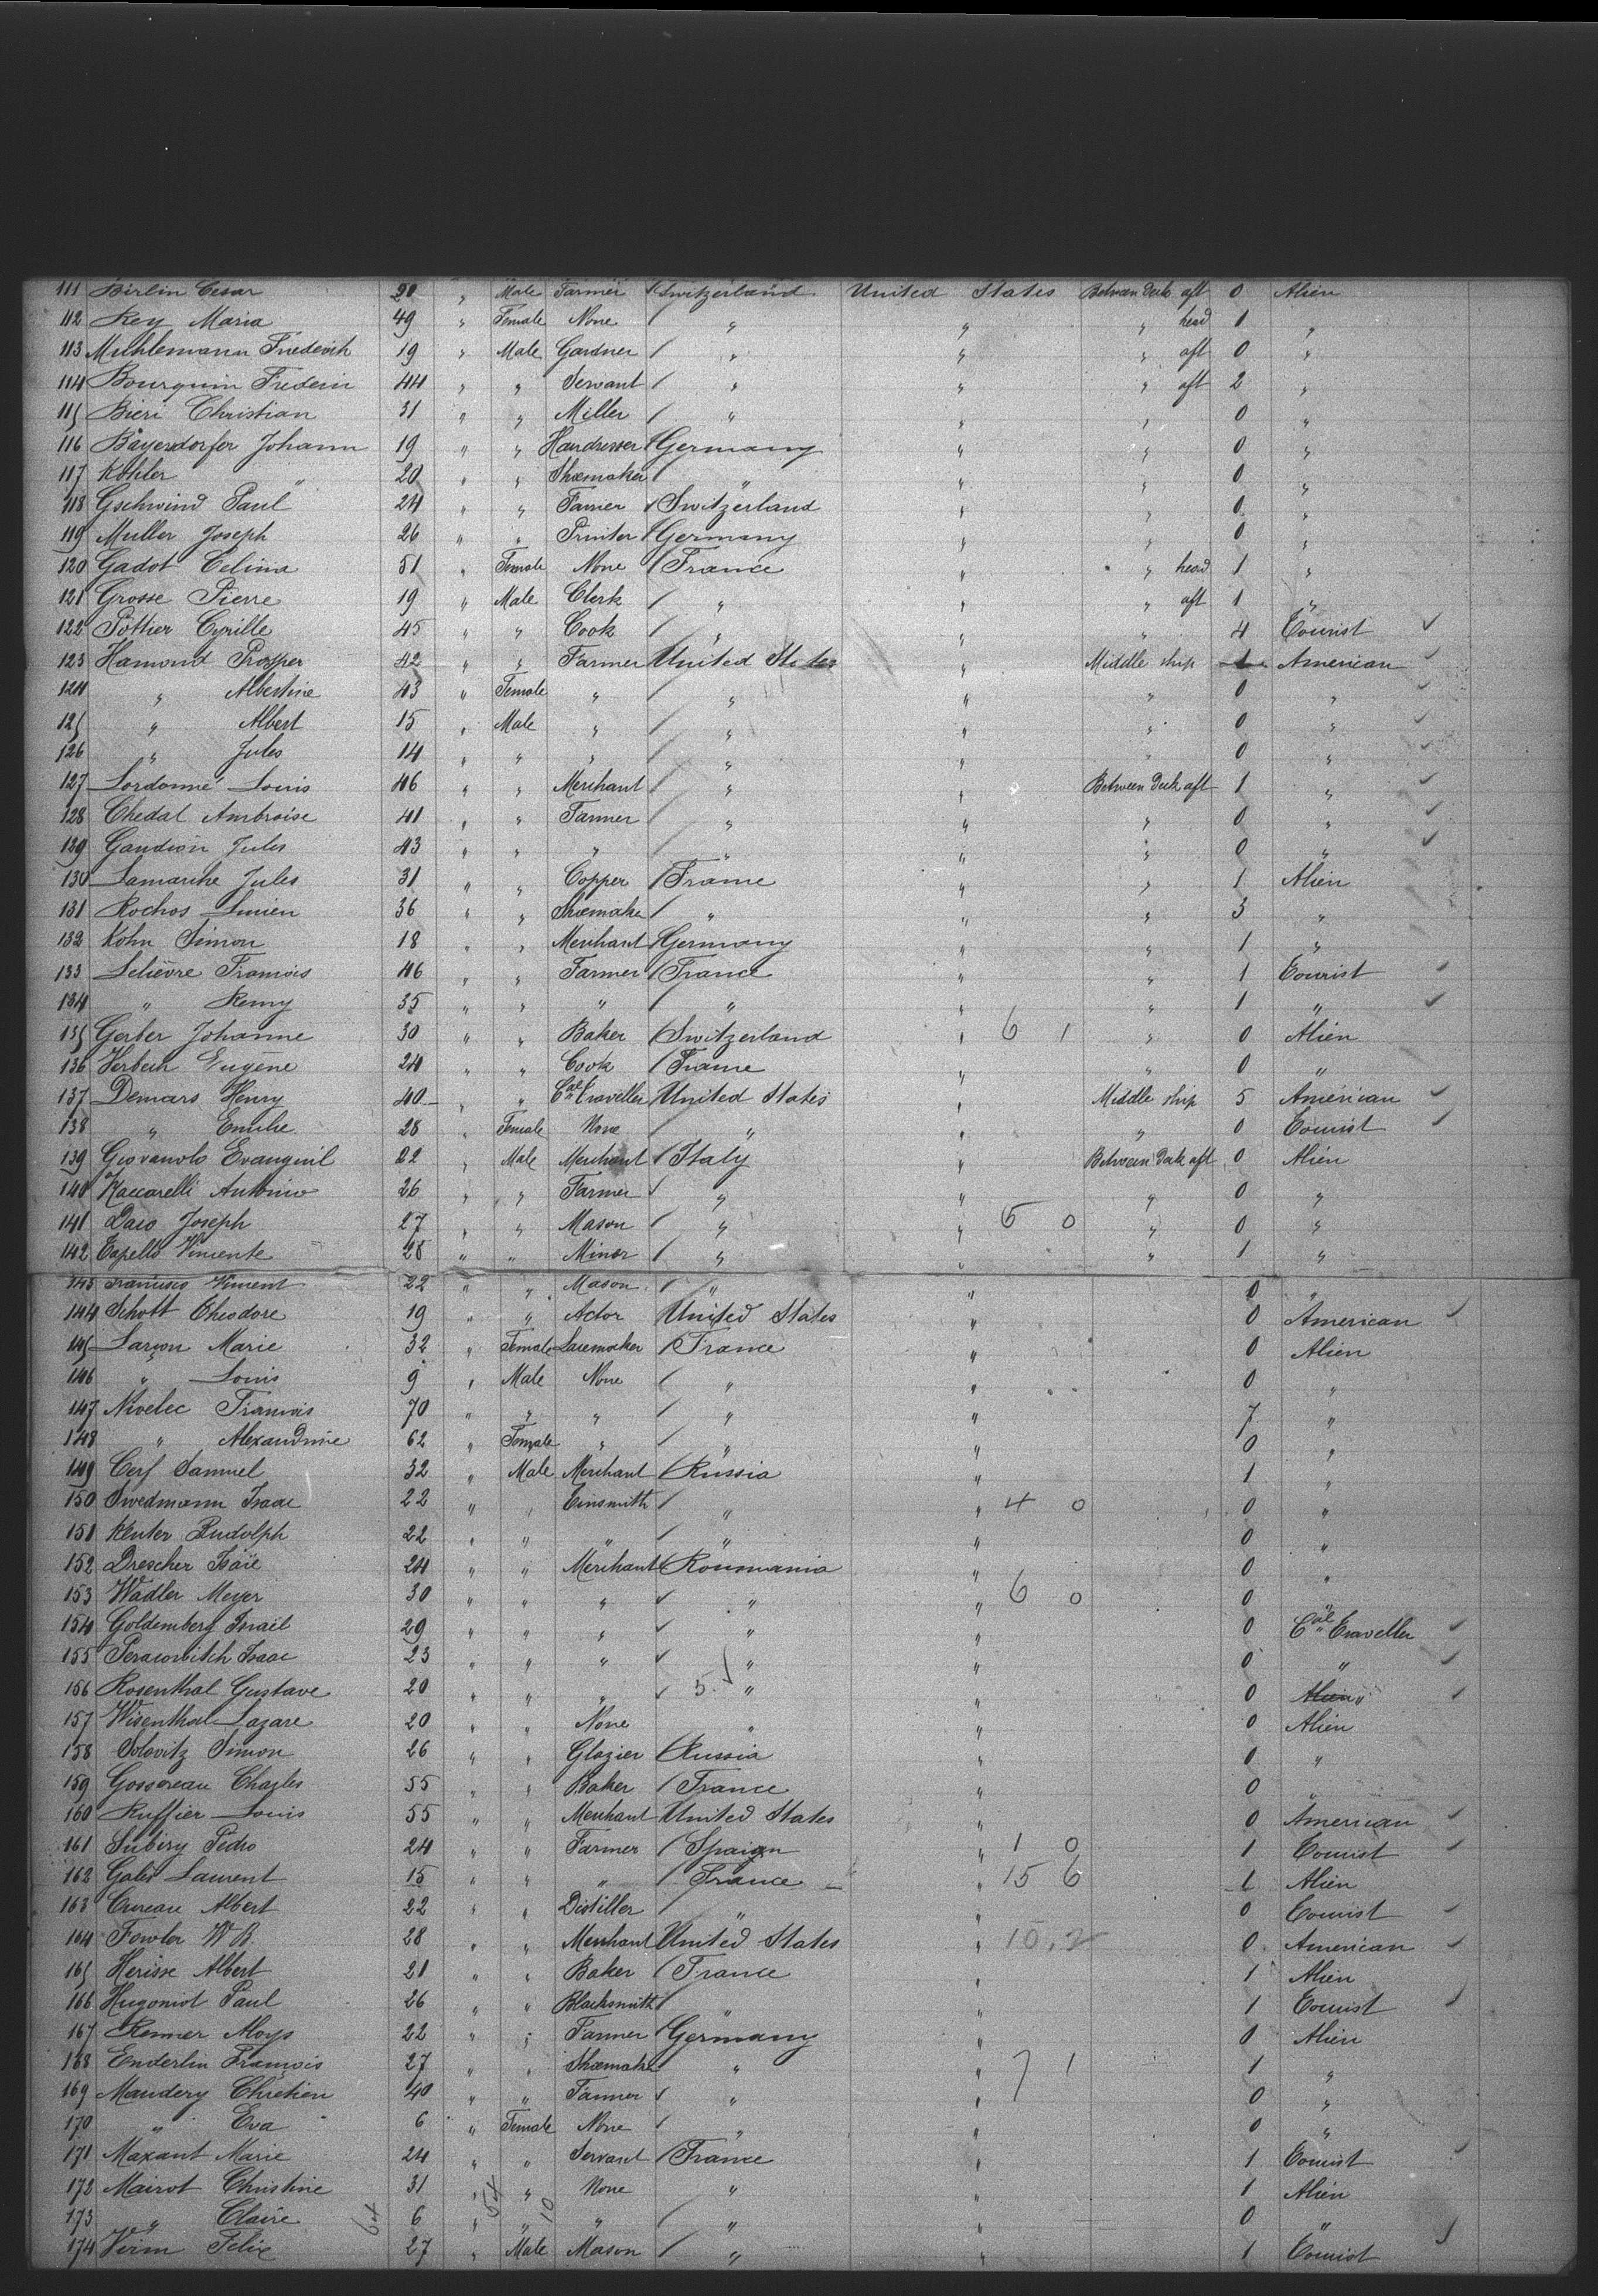 111 Birlin Cesar 20 " Male Farmer Switzerland United States Between Deck aft 0 Alien
112 Rey Maria 49 " Female None " " " head 1 "
113 Muhlemann Frederich 19 " Male Gardner " " " aft 0 "
114 Bourquin Frederic 44 " " Servant " " " aft 2 "
115 Bieri Christian 31 " " Miller " " " 0 "
116 Bayersdorfer Johann 19 " " Hairdresser Germany " " 0 "
117 Kohler " 20 " " Shoemaker " " " 0 "
118 Gschwind Paul 24 " " Farmer Switzerland " " 0 "
119 Muller Joseph 26 " " Printer Germany " " 0 "
120 Gadot Celina 51 " Female None France " " head 1 "
121 Grosse Pierre 19 " Male Clerk " " " aft 1 "
122 Pothier Cyrille 45 " " Cook " " " 4 Tourist
123 Hamond Prosper 42 " " Farmer United States " Middle ship 1 American
124 " Albertine 43 " Female " " " " 0 "
125 " Albert 15 " Male " " " " 0 "
126 " Jules 14 " " " " " " 0 "
127 Lordonné Louis 46 " " Merchant " " Between Deck aft 1 "
128 Chedal Ambroise 41 " " Farmer " " " 0 "
129 Gaudion Jules 43 " " " " " " 0 "
130 Lamarche Jules 31 " " Copper France " " 1 Alien
131 Rochos Lucien 36 " " Shoemaker " " " 3 "
132 Kohn Simon 18 " " Merchant Germany " " 1 "
133 Lelièvre Francois 46 " " Farmer France " " 1 Tourist
134 " Remy 35 " " " " " " 1 "
135 Gerber Johanne 30 " " Baker Switzerland " 6 1 " 0 Alien
136 Verbech Eugène 24 " " Cook France " " 0 "
137 Demars Henry 40 " " Cal Traveller United States " Middle ship 5 American
138 " Emilie 28 " Female None " " " 0 Tourist
139 Giovanolo Evangenil 22 " Male Merchant Italy " Between Deck aft 0 Alien
140 Zaccarelli Antonio 26 " " Farmer " " " 0 "
141 Daio Joseph 27 " " Mason " " 6 0 " 0 "
142 Capello Vincente 28 " " Miner " " " 1 "
143 Francisco Vincent 22 " " Mason " " 0 "
144 Schott Theodore 19 " " Actor United States " 0 American
145 Larçon Marie 32 " Female Lacemaker France " 0 Alien
146 " Louis 9 " Male None " " 0 "
147 Nivelec Francois 70 " " " " " 7 "
148 " Alexandrine 62 " Female " " " 0 "
149 Cerf Samuel 32 " Male Merchant Russia " 1 "
150 Swedmann Isaac 22 " " Tinsmith " " 4 0 0 "
151 Kenter Rudolph 22 " " " " " 0 "
152 Drescher Isaïe 24 " " Merchant Roumania " 0 "
153 Wadler Meyer 30 " " " " " 6 0 0 "
154 Goldemberg Israël 29 " " " " " 0 Cal Traveller
155 Peracovitch Isaac 23 " " " " " 0 "
156 Rosenthal Gustave 20 " " " 5 " " 0 Alien "
157 Wisenthal Lazare 20 " " None " " 0 Alien
158 Solovitz Simon 26 " " Glazier Russia " 0 "
159 Gossereau Charles 55 " " Baker France " 0 "
160 Ruffier Louis 55 " " Merchant United States " 0 American
161 Subiry Pedro 24 " " Farmer Spaign " 1 0 1 Tourist
162 Galès Laurent 15 " " " France " 15 6 1 Alien
163 Cureau Albert 22 " " Distiller " " 0 Tourist
164 Fowler W B. 28 " " Merchant United States " 10,2 0 American
165 Herisse Albert 21 " " Baker France " 1 Alien
166 Hugoniot Paul 26 " " Blacksmith " " 1 Tourist
167 Renner Aloys 22 " " Farmer Germany " 0 Alien
168 Enderlin François 27 " " Shoemaker " " 7 1 1 "
169 Maudery Chrétien 40 " " Farmer " " 0 "
170 " Eva 6 " Female None " " 0 "
171 Maxant Marie 24 " " Servant France " 1 Tourist
172 Mairot Christine 31 " " None " " 1 Alien
173 " Claire 64 6 " 54 " 10 " " " 0 "
174 Virm Felix 27 " Male Mason " " 1 Tourist